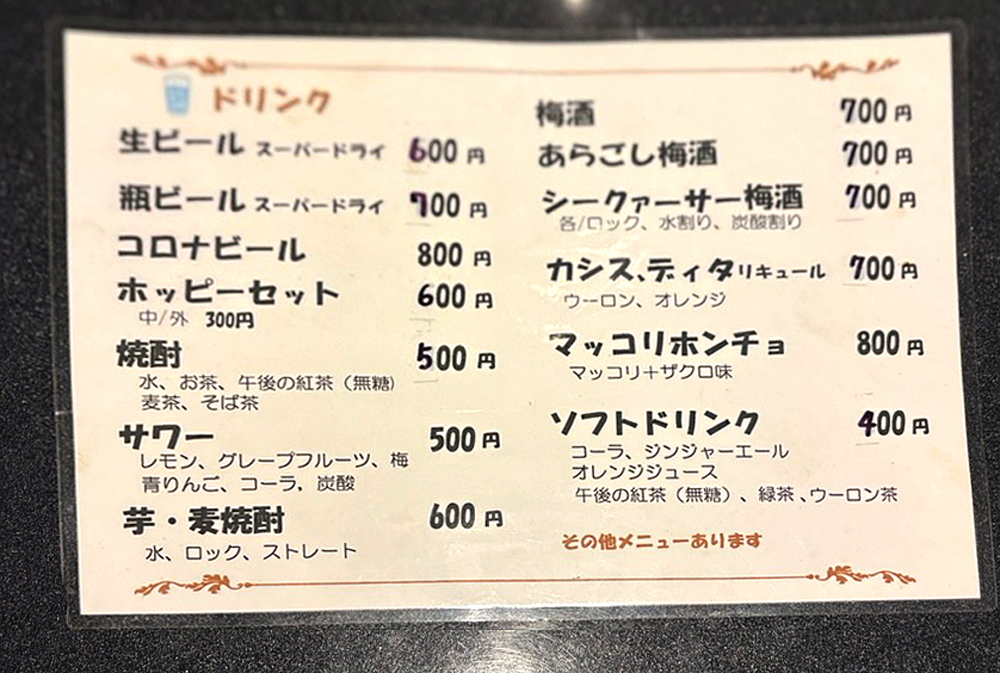 ドリンク
生ビール スーパードライ 600円
瓶ビール スーパードライ 700円
コロナビール 800円
ホッピーセット 600円
中/外 300円
焼酎 500円
水、お茶、午後の紅茶（無糖）
麦茶、そば茶
サワー 500円
レモン、グレープフルーツ、梅
青りんご、コーラ、炭酸
芋・麦焼酎 600円
水、ロック、ストレート
梅酒 700円
あらごし梅酒 700円
シークァーサー梅酒 700円
各/ロック、水割り、炭酸割り
カシス、ディタリキュール 700円
ウーロン、オレンジ
マッコリホンチョ 800円
マッコリ＋ザクロ味
ソフトドリンク 400円
コーラ、ジンジャーエール
オレンジジュース
午後の紅茶（無糖）、緑茶、ウーロン茶
その他メニューあります